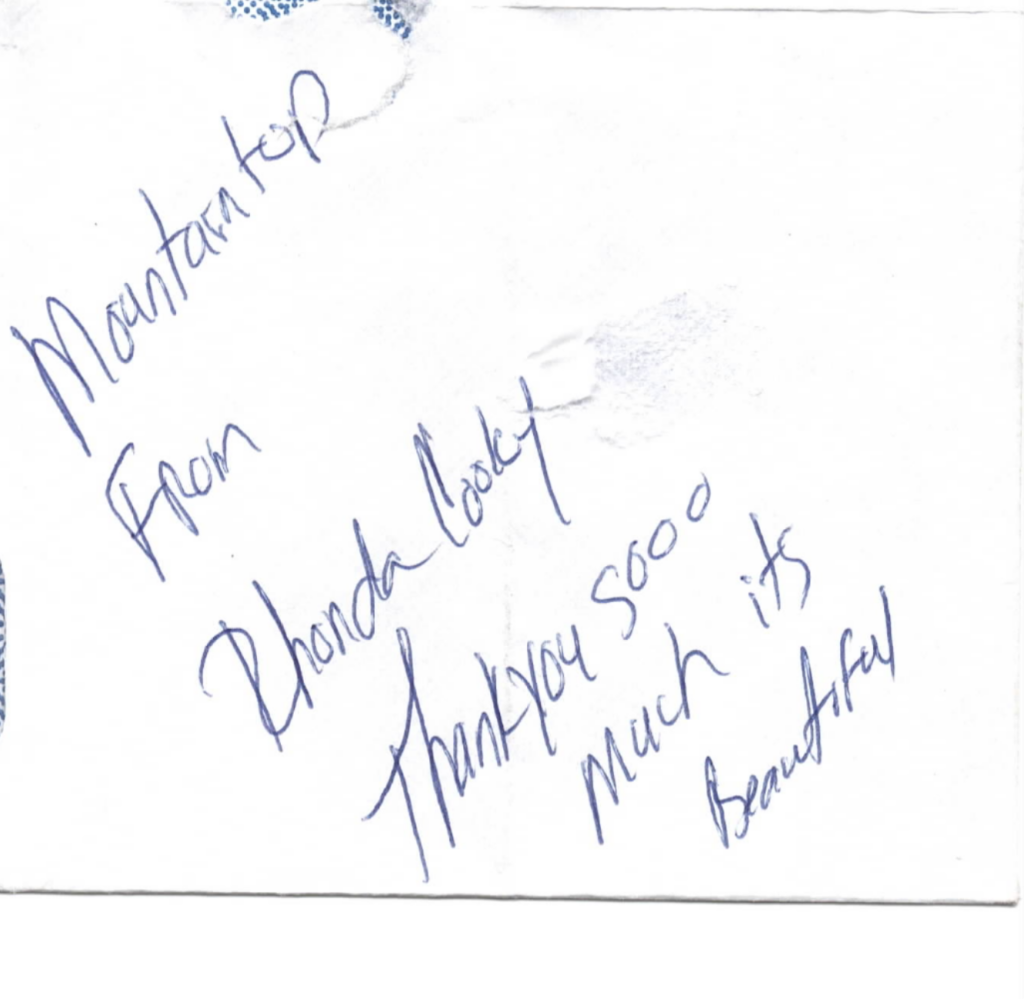 Mountaintop
From
Rhonda Cooky
Thankyou sooo
Much its
Beautiful